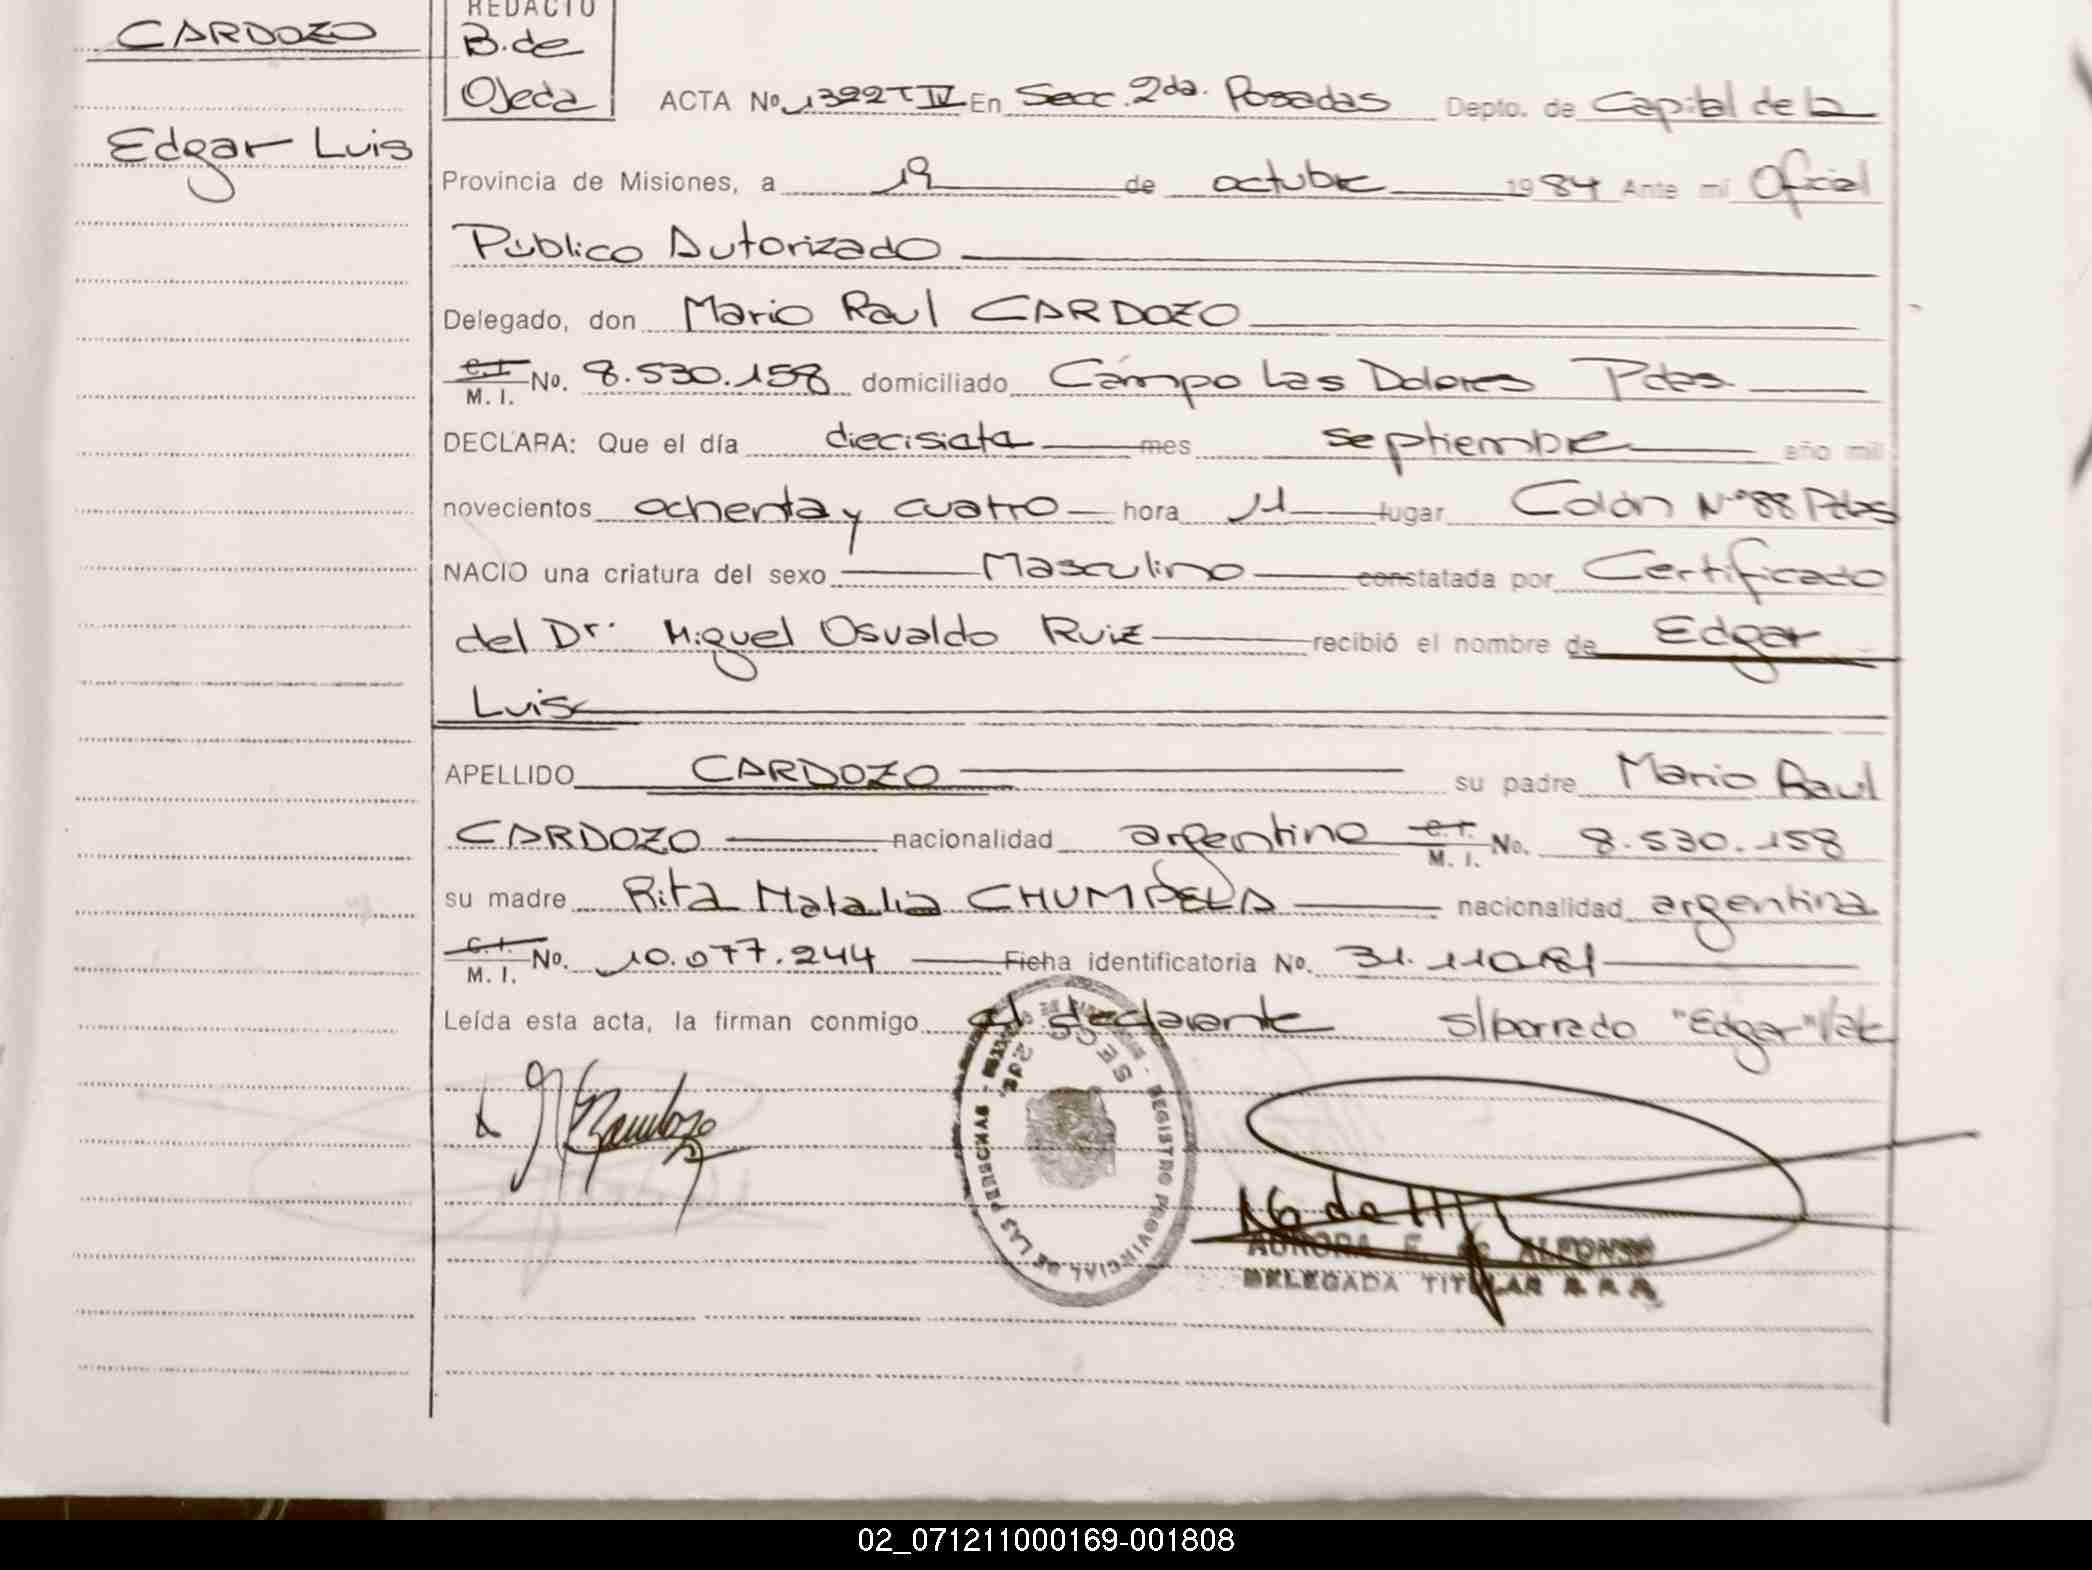 REDACTO
CARDOZO
B. de
Ojeda
ACTA No. 1322 T IV En Secc. 2da. Posadas Depto. de Capital de la
Edgar Luis
Provincia de Misiones, a 19 de octubre 1984 Ante mí Oficial
Público Autorizado
Delegado, don Mario Raul CARDOZO
C.I. No. 8.530.158 domiciliado Cámpo Las Dolores Pdas
M. I.
DECLARA: Que el día diecisiete mes septiembre año mil
novecientos ochenta y cuatro hora 11 lugar Colón Nº 88 Pdas
NACIO una criatura del sexo Masculino constatada por Certificado
del Dr. Miguel Osvaldo Ruiz recibió el nombre de Edgar
Luis
APELLIDO CARDOZO su padre Mario Raul
CARDOZO nacionalidad argentino C.I. No. 8.530.158
M. I.
su madre Rita Natalia nacionalidad argentina
C.I. No. 10.077.244 Ficha identificatoria No. 31.110.181
M. I.
Leída esta acta, la firman conmigo el declarante s/borrado "Edgar"
SECC 2da.
REGISTRO PROVINCIAL DE LAS PERSONAS
AURORA F. de ALFONSO
DELEGADA TITULAR
02_071211000169-001808